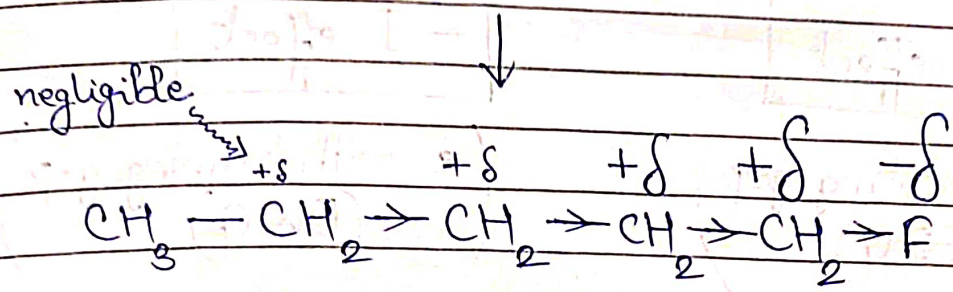 negligible
+δ +δ +δ +δ -δ
CH₃ — CH₂ → CH₂ → CH₂ → CH₂ → F